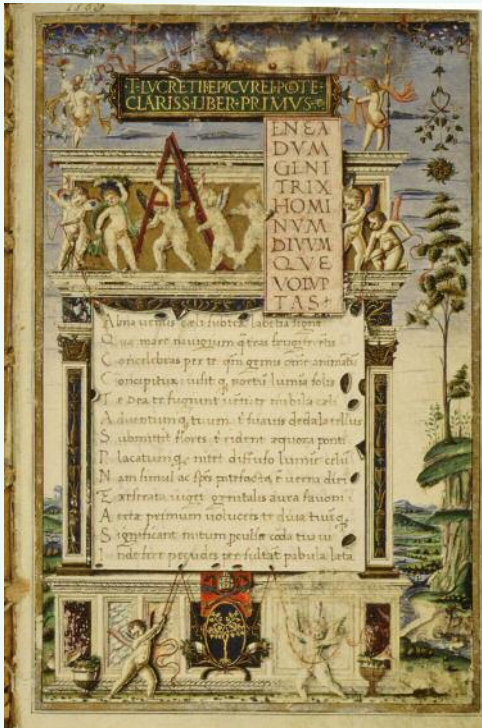 T·LVCRETII·EPICVREI·POTE
CLARISS·LIBER·PRIMVS·
A
ENEA
DVM
GENI
TRIX
HOMI
NVM
DIVVM
QVE
VOLVP
TAS
Alma uenus cæli subter labentia signa
Quæ mare nauigium q̄ terras frugiferētis
Concelebras per te qm̄ genus omne animātū
Concipitur uisitq̨ exortū lumīa solis
Te Dea te fugiunt uēti te nubila cæli
Aduentumq̨ tuum t̄ suauis dedala tellus
Submittit flores t̄ rident æquora ponti
Placatumq̨ nitet diffuso lumīe celū
Nam simul ac spēs patefacta ē uerna diei
Et reserata uiget genitalis aura fauoni
Aeriæ primum uolucres te diua tuūq̨
Significant initum perculsæ corda tua ui
Inde feræ pecudes persultāt pabula læta